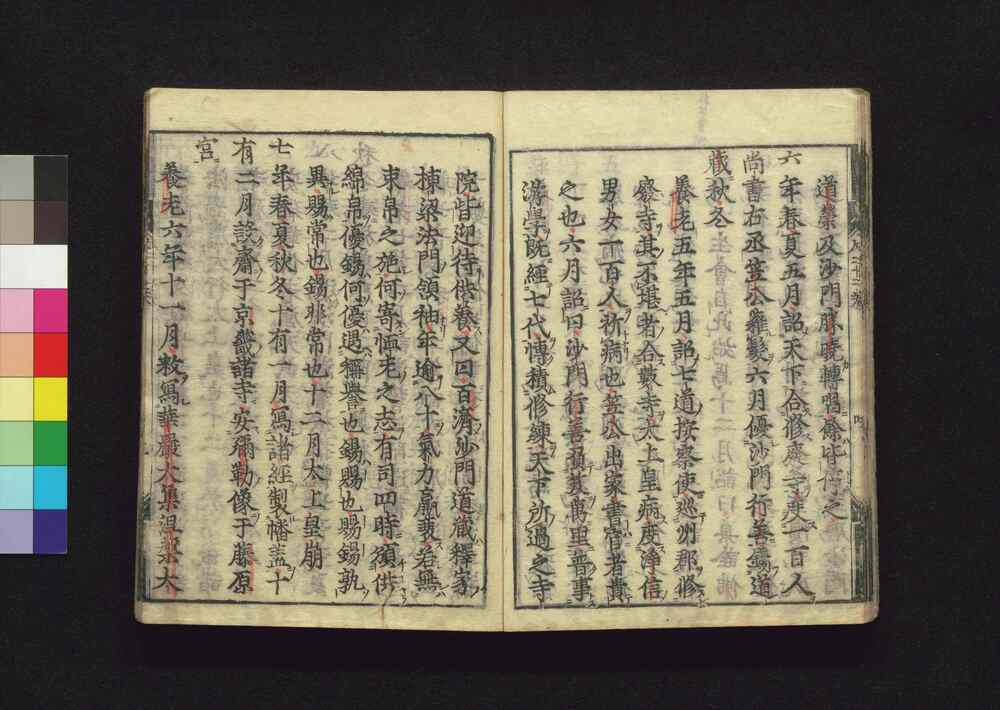 道榮及沙門勝曉轉唱餘皆停之
六年春夏五月詔天下令修廢寺度一百人
尚書右丞笠公薙髮六月優沙門行善錫道
藏秋冬
養老五年五月詔七道按察使巡州郡修
廢寺其不堪者合數寺太上皇病度淨信
男女一百人祈病也笠公出家書官者貴
之也六月詔曰沙門行善負笈萬里普事
游學既經七代慱積修練天下所過之寺
院皆迎待供養又曰百濟沙門道藏釋家
棟梁法門領袖年逾八十氣力羸衰若無
束帛之施何寄恤老之志有司四時須供
綿帛優錫何優遇穪譽也錫賜也賜錫孰
異賜常也錫非常也十二月太上皇崩
七年春夏秋冬十有一月寫諸經製幡蓋十
有二月設齋于京畿諸寺安彌勒像于藤原
宮
養老六年十一月敕寫華嚴大集涅槃大